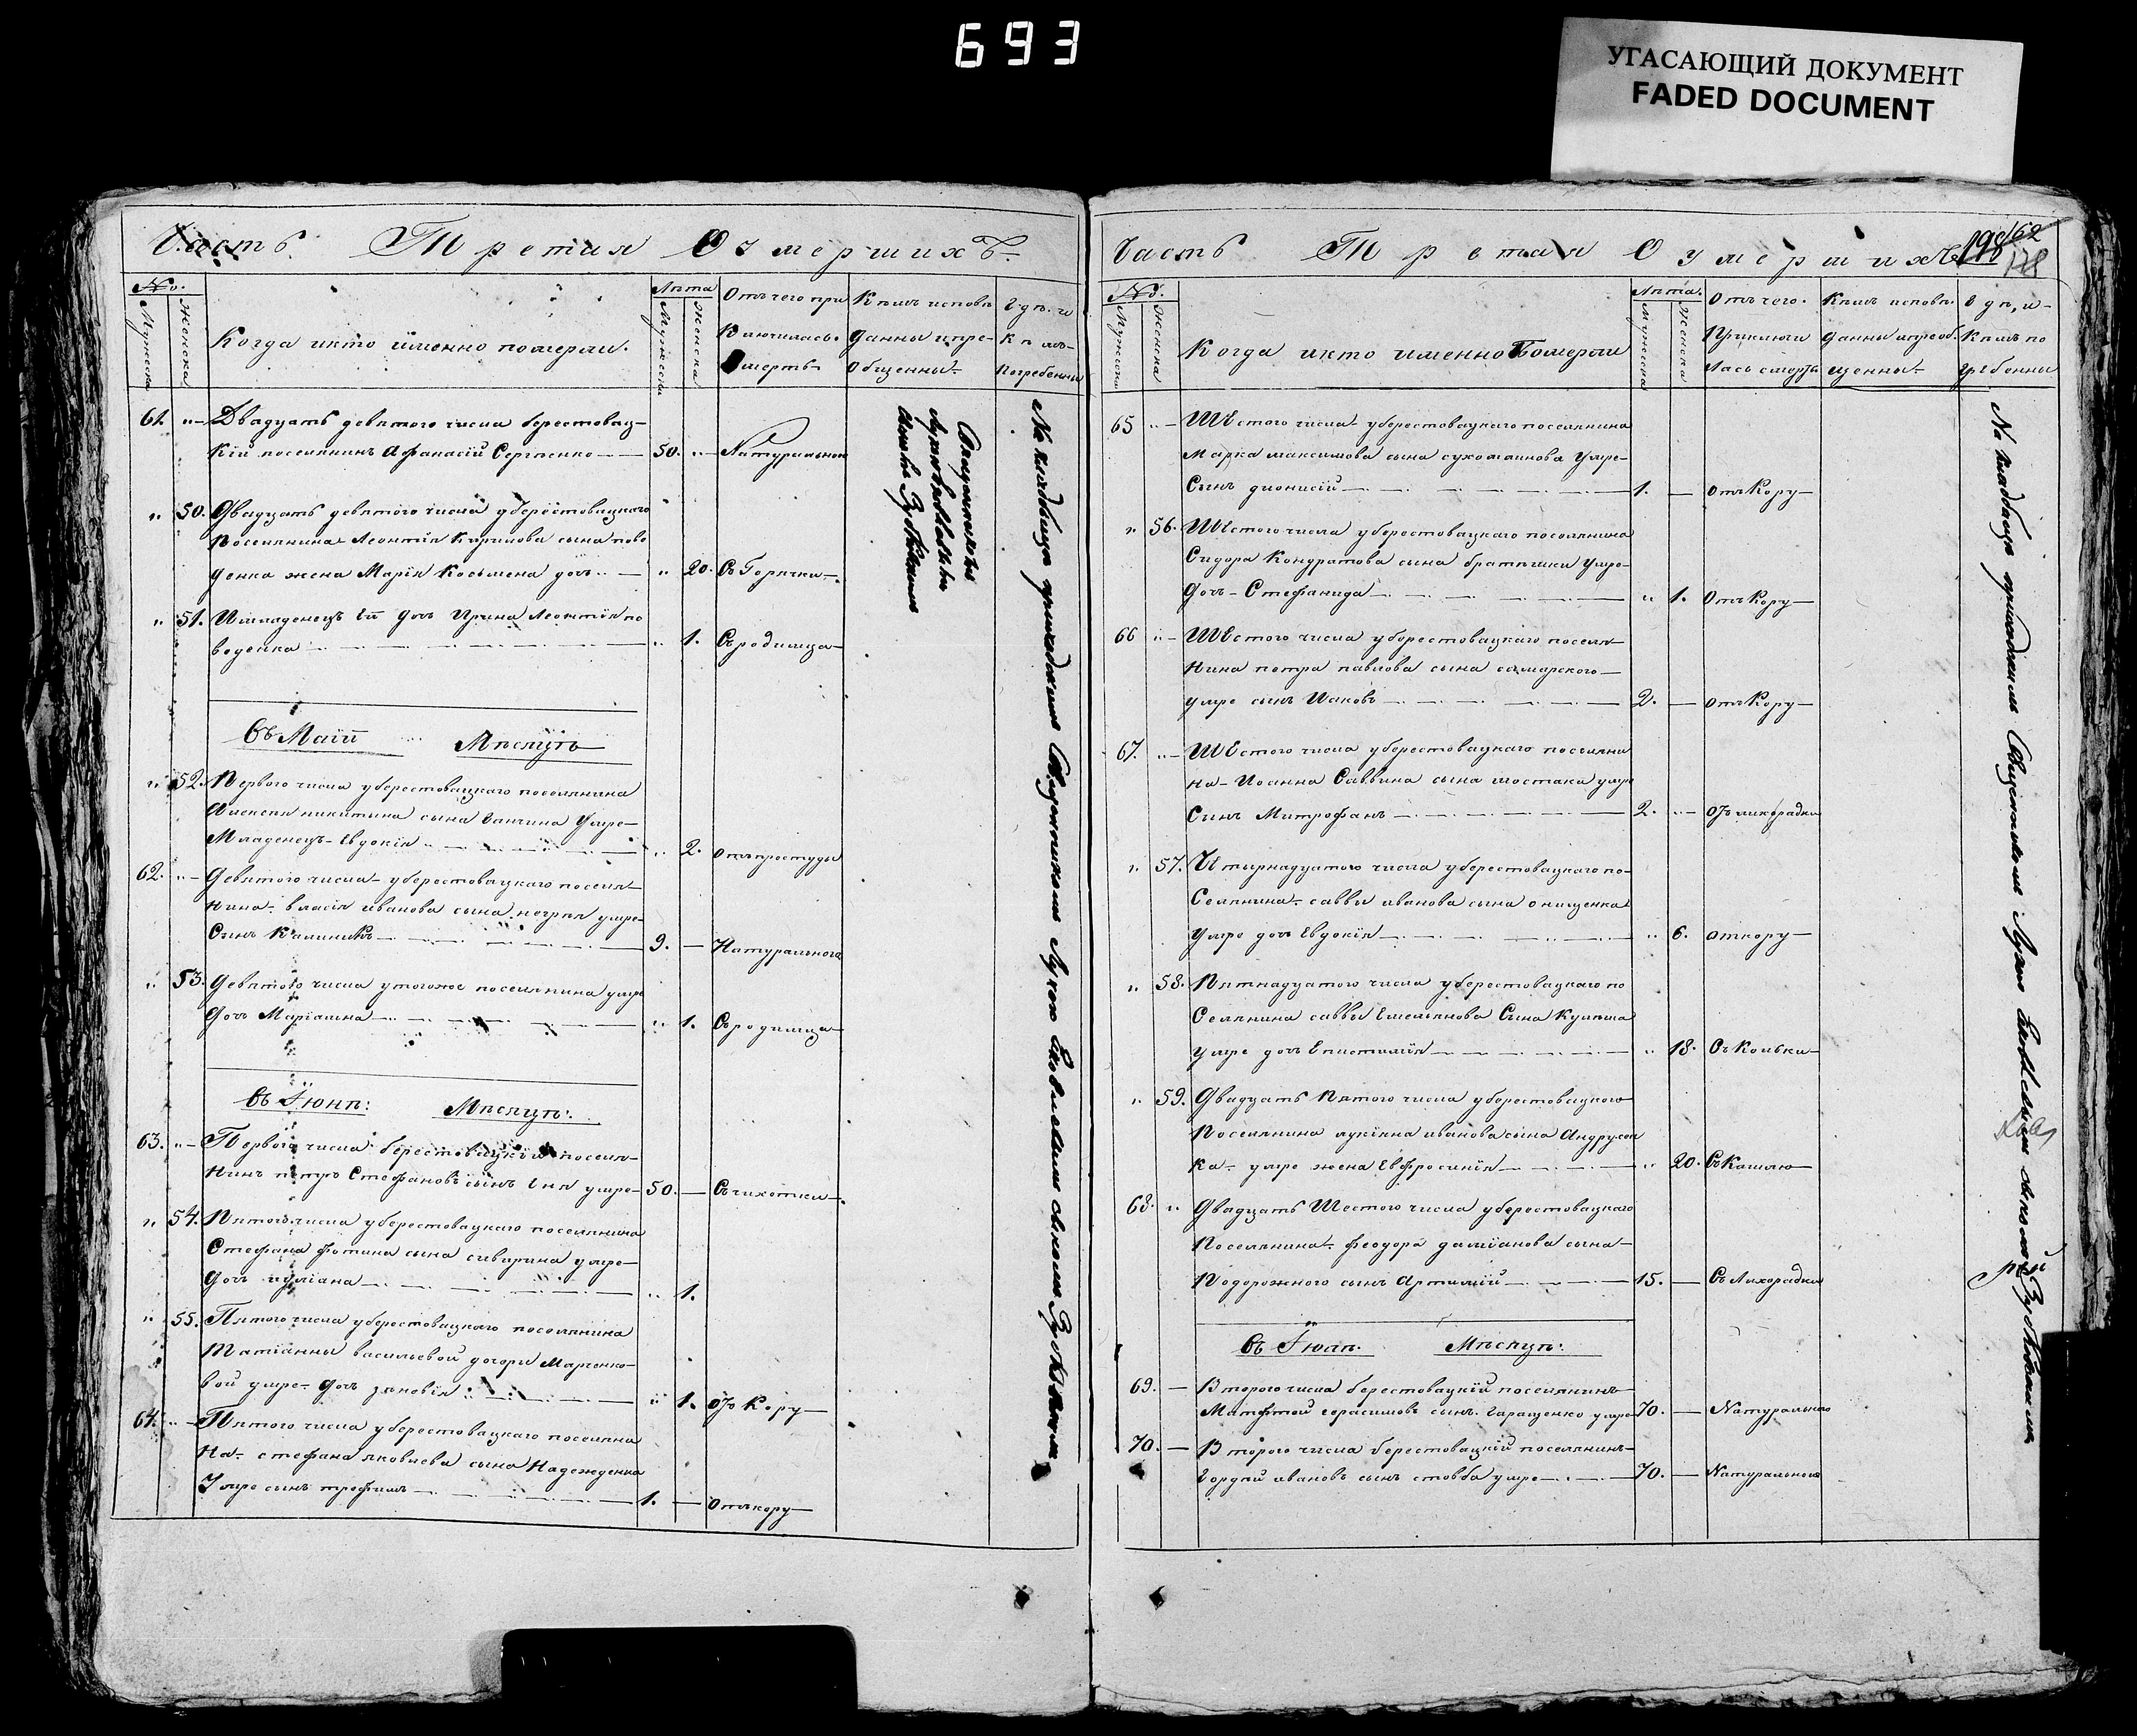 693
УГАСАЮЩИЙ ДОКУМЕНТ
FADED DOCUMENT
Часть Третия О умершихъ
№.
Мужеска
Женска
Когда икто именно померли.
Лѣта
Мужеска
Женска
Отъ чего при
ключилась
смерть
Кѣмъ исповѣ
данны ипре-
общенны
Гдѣ и
Кѣмъ
погребенны
61. „ Двадцать девятого числа берестовац-
кій поселянинъ Афанасій Сергѣенко 50. „ Натуральной
„ 50. Двадцать девятого числа уберестовацкаго
поселянина Леонтія Кирилова сына пово
денка жена Марія Косьмена дочъ „ 20. Съ Горячки
„ 51. Имладенецъ дочъ Ирина Леонтія по
воденка „ 1. Съродимца
Въ Маіи Мѣсяцѣ
„ 52. Первого числа уберестовацкаго поселянина
Алексѣя никитина сына Ганчина Умре
Младенецъ Евдокія „ 2. отъпростуды
62. „ Девятого числа уберестовацкаго посел-
нина власія иванова сына негрѣя умре
Сынъ Калиникъ 9. — Натурального
„ 53. Девятого числа утогоже поселянина умре
Дочъ Маріамна „ 1. Съродимца
Въ Іюнѣ: Мѣсяцѣ:
63. „ Первого числа берестовацкій поселя-
нинъ петръ Стефановъ сынъ умре 50. — Съчихотки
„ 54. Пятого числа уберестовацкаго поселянина
Стефана фотина сына сиварина умре
Дочъ иуліана „ 1.
„ 55. Пятого числа уберестовацкаго поселянина
Татіанны васильевой дочери Марченко-
вой умре дочъ зѣновія „ 1. отъ Кору
64. „ Пятого числа уберестовацкаго поселяни
на стефана яковлева сына Надежденка
Умре сынъ трофимъ 1. — Отъкору
Священникомъ
Лукою Еввѣевымъ
Зубковымъ
На кладбищѣ приходскимъ Священникомъ Лукою
Часть Третая О умершихъ
198
162
178
№.
Мужеска
Женска
Когда икто именно Померли
Лѣта.
Мужеска
Женска
Отъ чего.
Приключи
лась смерть
Кѣмъ исповѣ.
данны ипреоб.
щенны
Гдѣ, и
Кѣмъ по
гребенны
65 „ Шестого числа уберестовацкаго поселянина
Марка максимова сына сухомлинова Умре
Сынъ дионисій 1. — отъ Кору
„ 56. Шестого числа уберестовацкаго поселянина
Сидора Кондратова сына братишки Умре
Дочъ Стефанида „ 1. Отъ Кору
66 „ Шестого числа уберестовацкаго поселя-
нина петра павлова сына самарского
умре сынъ Иаковъ 2. — отъ Кору
67. „ Шестого числа уберестовацкаго поселяни
на Иоанна Саввина сына шостака умре
Сынъ Митрофанъ 2. „ Отъ лихорадки
„ 57. Четырнадцатого числа уберестовацкаго по-
Селянина саввы иванова сына онищенка
Умре дочъ Евдокія „ 6. откору
„ 58. Пятнадцатого числа уберестовацкаго по
Селянина саввы Емельянова Сына Кулѣша
умре дочъ Епистимія „ 18. Съ Кольки
„ 59. Двадцать Пятого числа уберестовацкого
Поселянина лукіяна иванова сына Андрусен
ка умре жена Евфросинія „ 20. Съ Кашлю
68. „ Двадцать Шестого числа уберестовацкаго
Поселянина феодора даміанова сына
Подорожного сынъ Артимій 15. — Съ Лихорадки
Въ Іюлѣ. Мѣсяцѣ:
69. — Второго числа берестовацкій поселянинъ
Матфей герасимовъ сынъ Гаращенко умре 70. — Натурального
70. — Второго числа берестовацкій поселянинъ
Гордѣй ивановъ сынъ стовба умре 70. — Натурального
На кладбищѣ приходскимъ Священникомъ Лукою